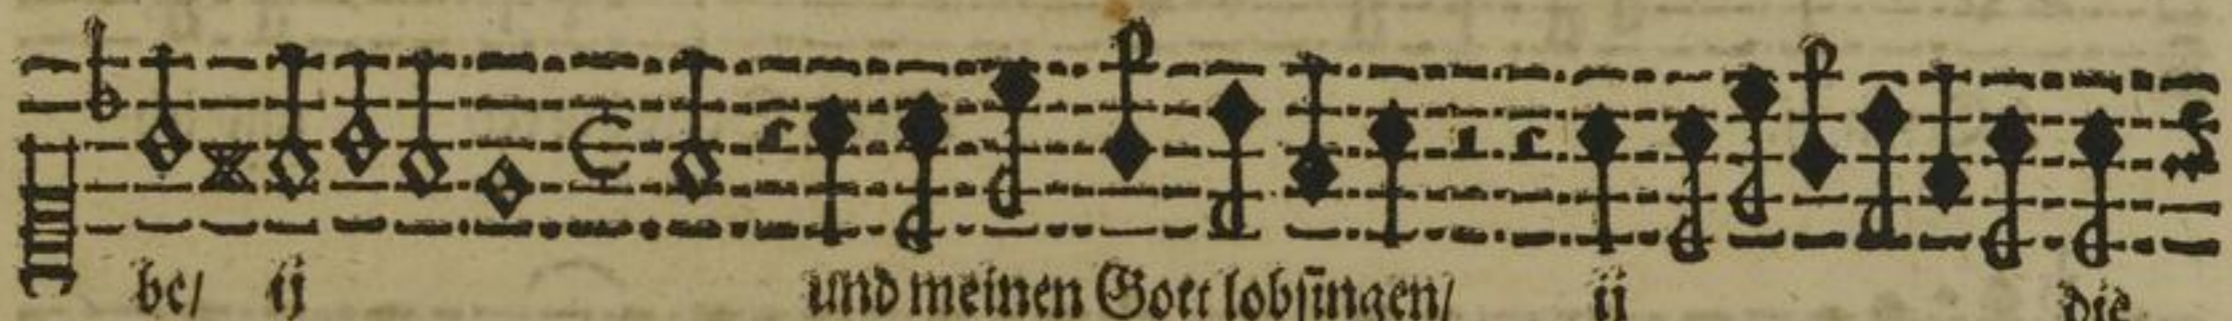 be/ ij und meinen Gott lobsingen/ ij die